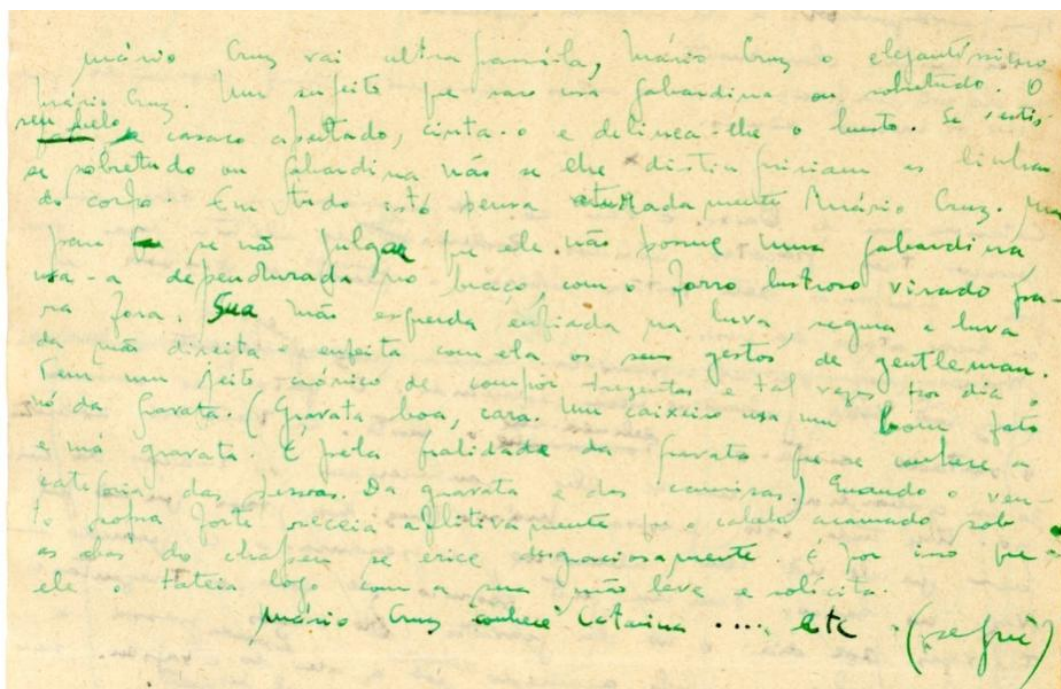 Mário Cruz vai ultra família, Mário Cruz o elegantíssimo
Mário Cruz. Um sujeito que raro usa gabardina ou sobretudo. O
seu belo casaco apertado, cinta-o e delinea-lhe o busto. Se vestis-
se sobretudo ou gabardina não se lhe distinguiriam as linhas
do corpo. Em tudo isto pensa Mário Cruz. Mas
para se não julgar que ele não possue uma gabardina
usa-a dependurada no braço, com o forro lustroso virado pa-
ra fora. Sua mão esquerda enfiada na luva, segura a luva
da mão direita e enfeita com ela os seus gestos de gentleman.
Tem um jeito crónico de compôr trezentas e tal vezes por dia o
nó da gravata. (Gravata boa, cara. Um caixeiro usa um bom fato
e má gravata. É pela qualidade da gravata que se conhece a
categoria das pessoas. Da gravata e das camisas.) Quando o ven-
to sopra forte receia aflitivamente que o cabelo acamado sob
as abas do chapeu se erice desgraciosamente. É por isso que
ele o tateia logo com a sua mão leve e solícita.
Mário Cruz conhece Catarina .... etc (segue)